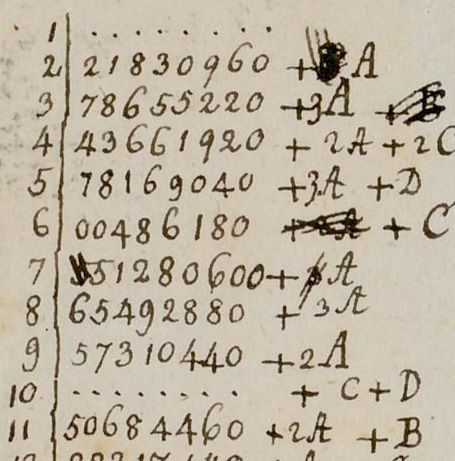 1 . . . . . . . .
2 21830960 + A
3 78655220 +3A
4 43661920 + 2A + 2C
5 78169040 +3A +D
6 00486180 + C
7 51280600 + A
8 65492880 + 3A
9 57310440 +2A
10 . . . . . . . . + C + D
11 50684460 +2A + B